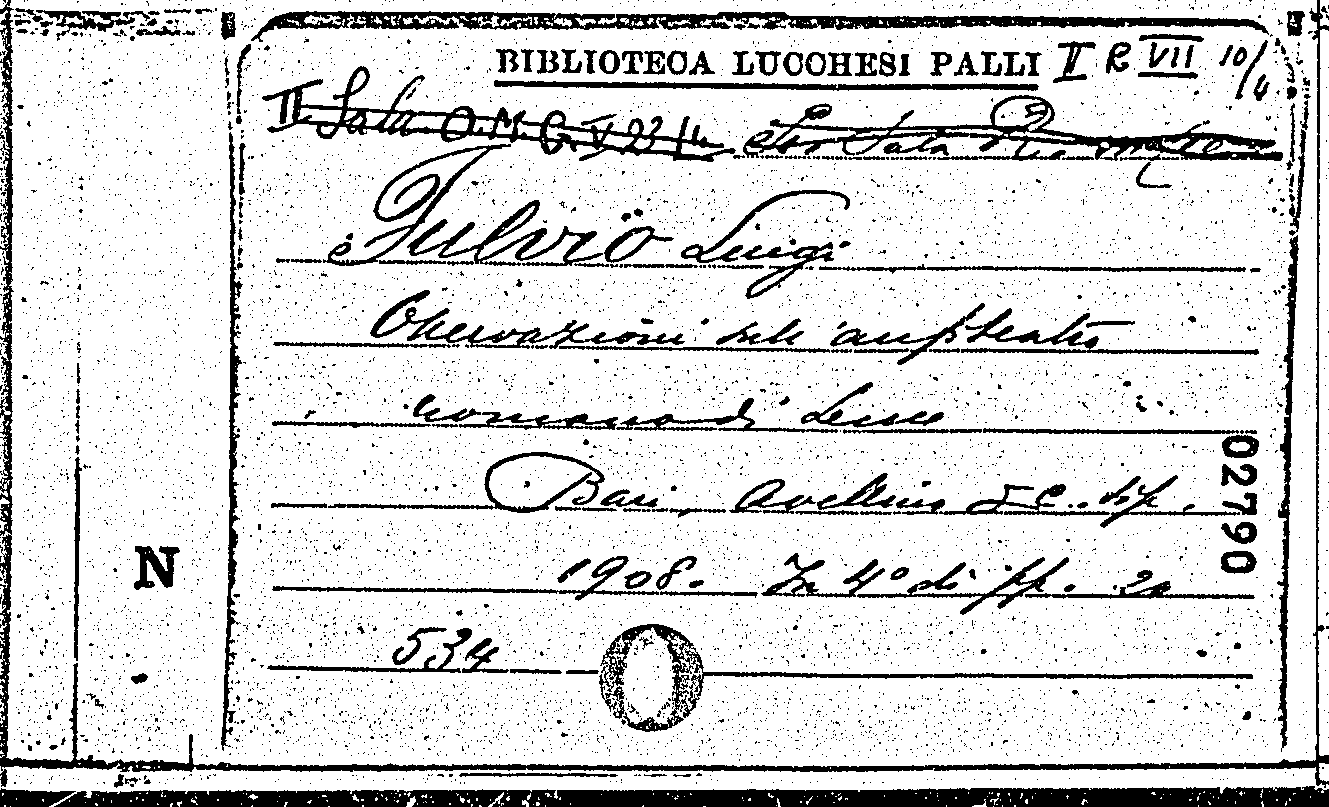 BIBLIOTECA LUCCHESI PALLI II R VII 10/4
II Sala O.M. G. V, 23/4
Sala
Fulvio Luigi
Osservazioni sull'anfiteatro
romano di Lecce
Bari, Avellino & C. tip.
1908. In 4° di pp. 20
534
02790
N